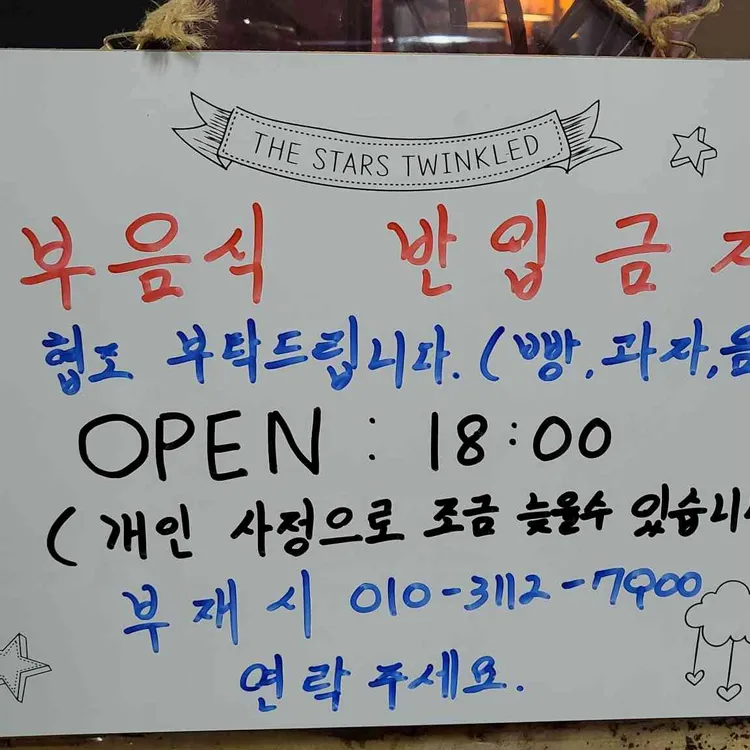 THE STARS TWINKLED
부음식 반입금지
협조 부탁드립니다. (빵, 과자, 음
OPEN : 18:00
( 개인 사정으로 조금 늦을수 있습니다
부재시 010-3112-7900
연락 주세요.